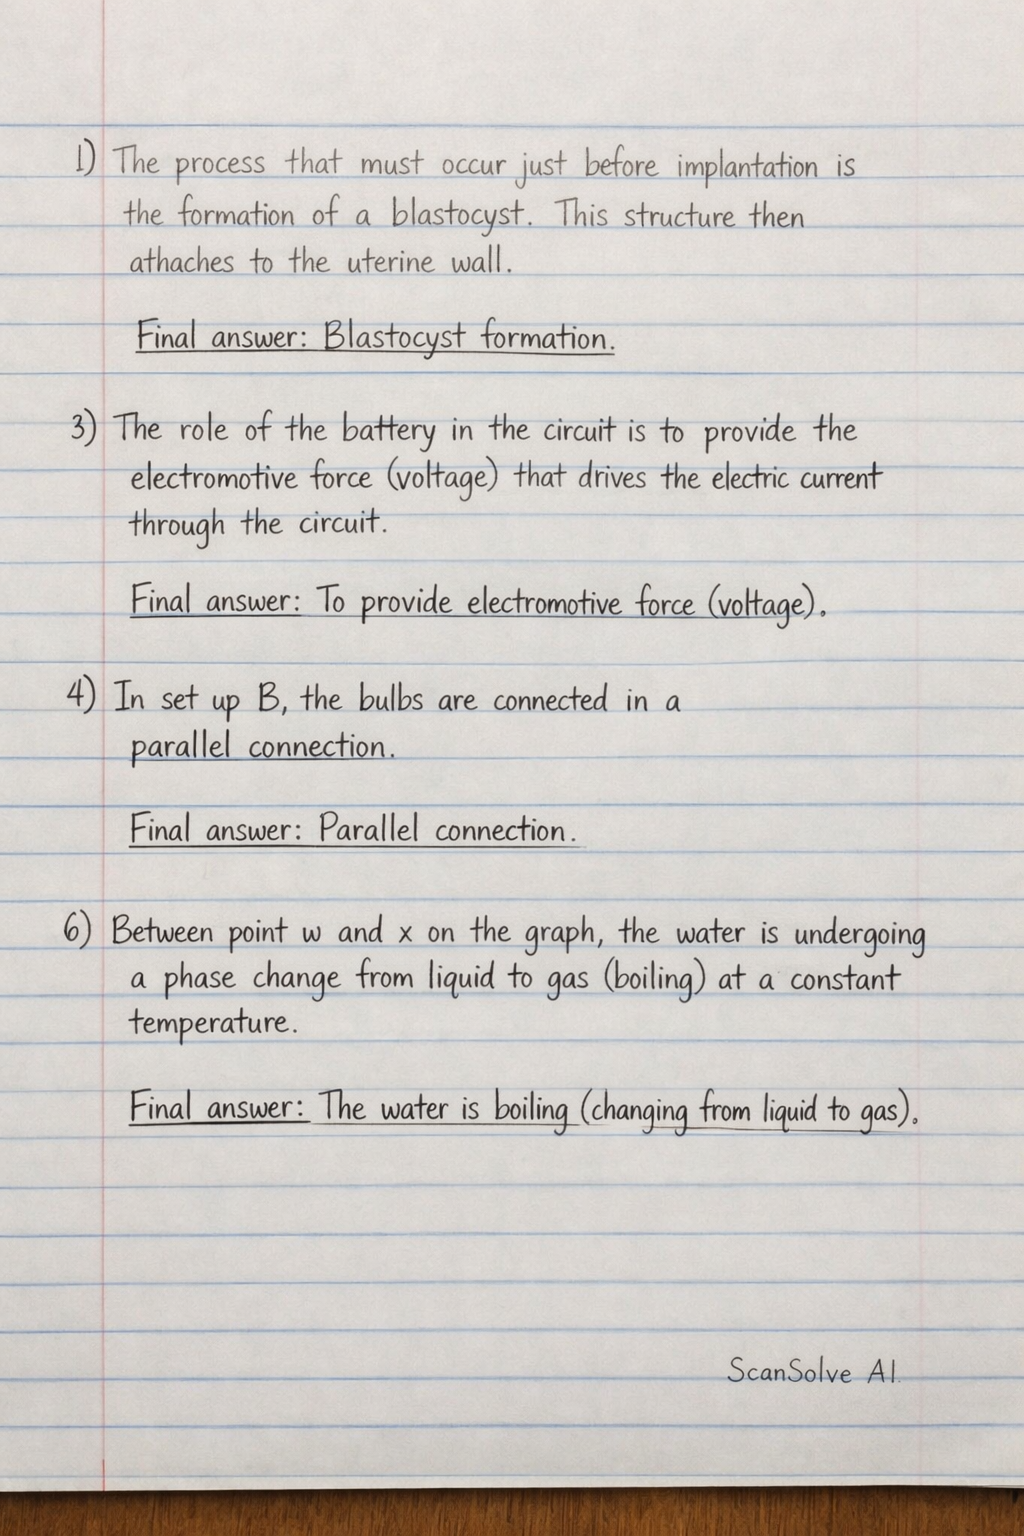 1) The process that must occur just before implantation is
the formation of a blastocyst. This structure then
athaches to the uterine wall.
Final answer: Blastocyst formation.
3) The role of the battery in the circuit is to provide the
electromotive force (voltage) that drives the electric current
through the circuit.
Final answer: To provide electromotive force (voltage).
4) In set up B, the bulbs are connected in a
parallel connection.
Final answer: Parallel connection.
6) Between point w and x on the graph, the water is undergoing
a phase change from liquid to gas (boiling) at a constant
temperature.
Final answer: The water is boiling (changing from liquid to gas).
ScanSolve AI.